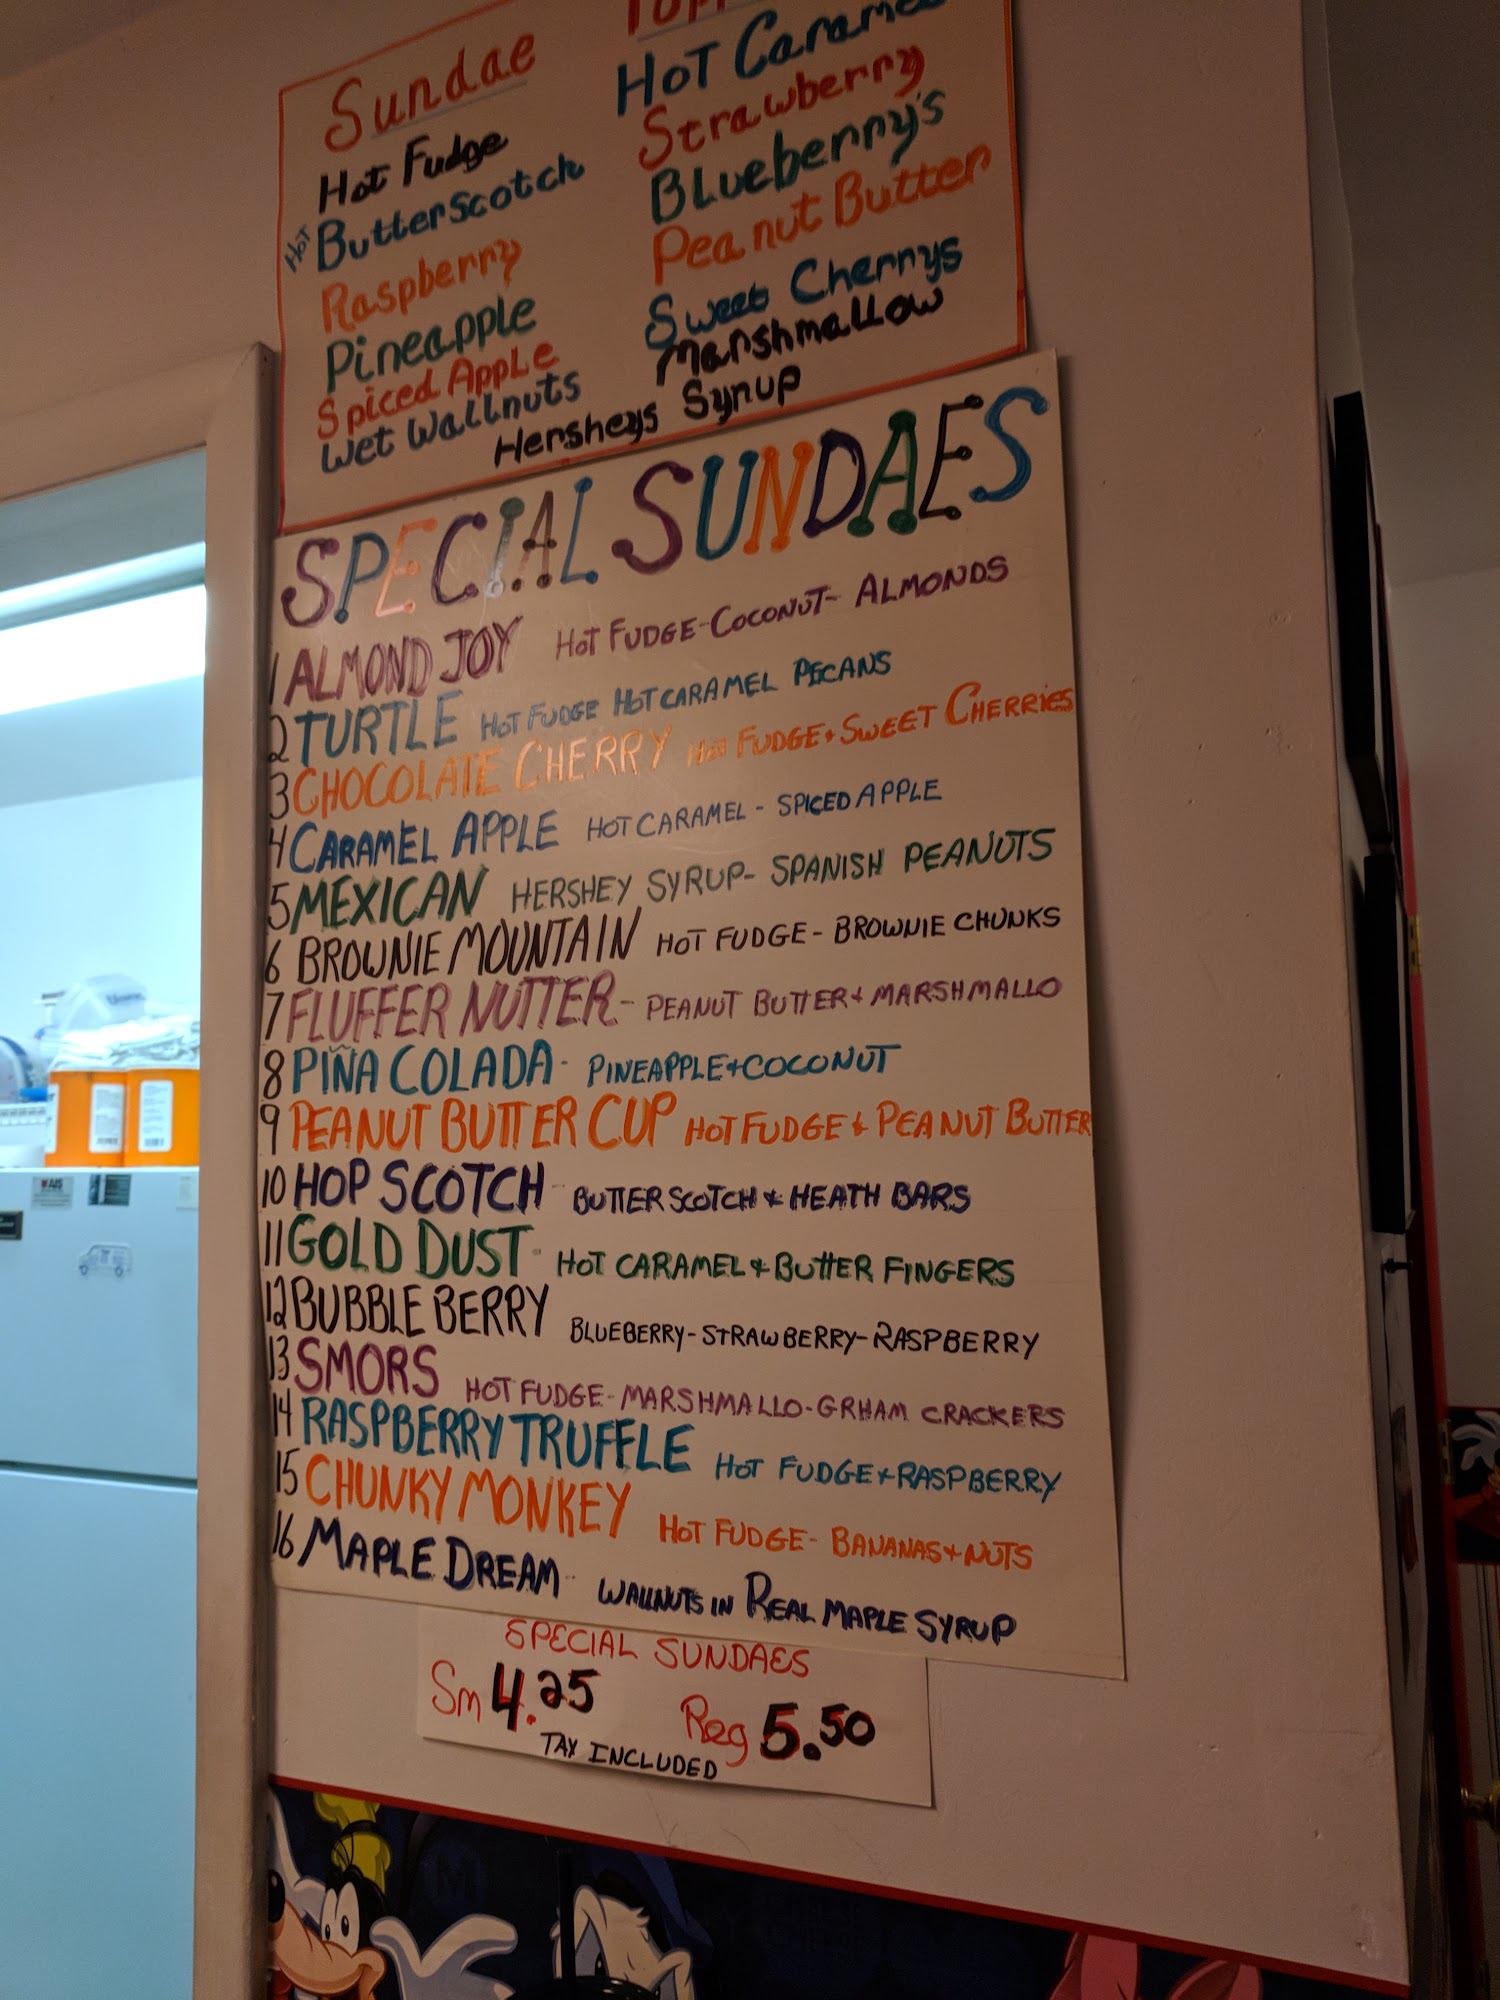 Sundae
Hot Fudge
Hot Butterscotch
Raspberry
Pineapple
Spiced Apple
Wet Wallnuts
Hot Caramel
Strawberry
Blueberry's
Peanut Butter
Sweet Cherrys
Marshmallow
Hersheys Syrup
SPECIAL SUNDAES
1 ALMOND JOY HOT FUDGE-COCONUT- ALMONDS
2 TURTLE HOT FUDGE HOT CARAMEL PECANS
3 CHOCOLATE CHERRY HOT FUDGE + SWEET CHERRIES
4 CARAMEL APPLE HOT CARAMEL - SPICED APPLE
5 MEXICAN HERSHEY SYRUP- SPANISH PEANUTS
6 BROWNIE MOUNTAIN HOT FUDGE - BROWNIE CHUNKS
7 FLUFFER NUTTER - PEANUT BUTTER + MARSHMALLO
8 PIÑA COLADA - PINEAPPLE + COCONUT
9 PEANUT BUTTER CUP HOT FUDGE & PEANUT BUTTER
10 HOP SCOTCH - BUTTERSCOTCH & HEATH BARS
11 GOLD DUST - HOT CARAMEL & BUTTER FINGERS
12 BUBBLE BERRY BLUEBERRY-STRAWBERRY-RASPBERRY
13 SMORS HOT FUDGE-MARSHMALLO-GRHAM CRACKERS
14 RASPBERRY TRUFFLE HOT FUDGE + RASPBERRY
15 CHUNKY MONKEY HOT FUDGE - BANANAS + NUTS
16 MAPLE DREAM - WALLNUTS IN REAL MAPLE SYRUP
SPECIAL SUNDAES
Sm 4.25 Reg 5.50
TAX INCLUDED